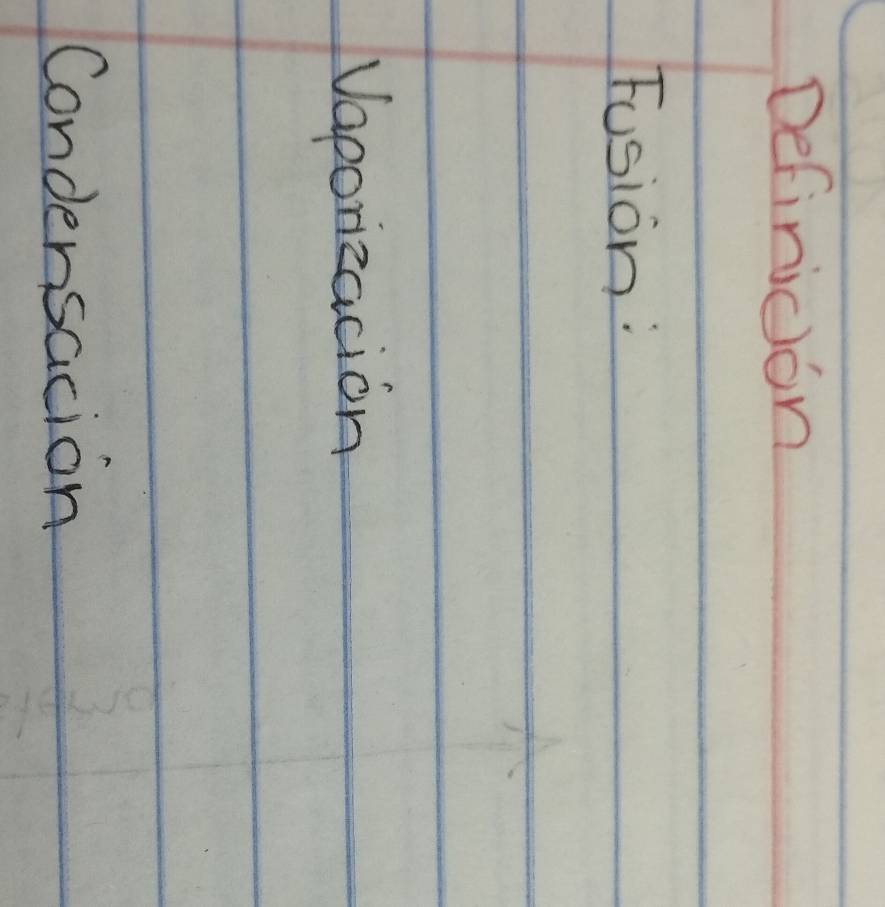 Definición
Fusión:
Vaporización
Condensación